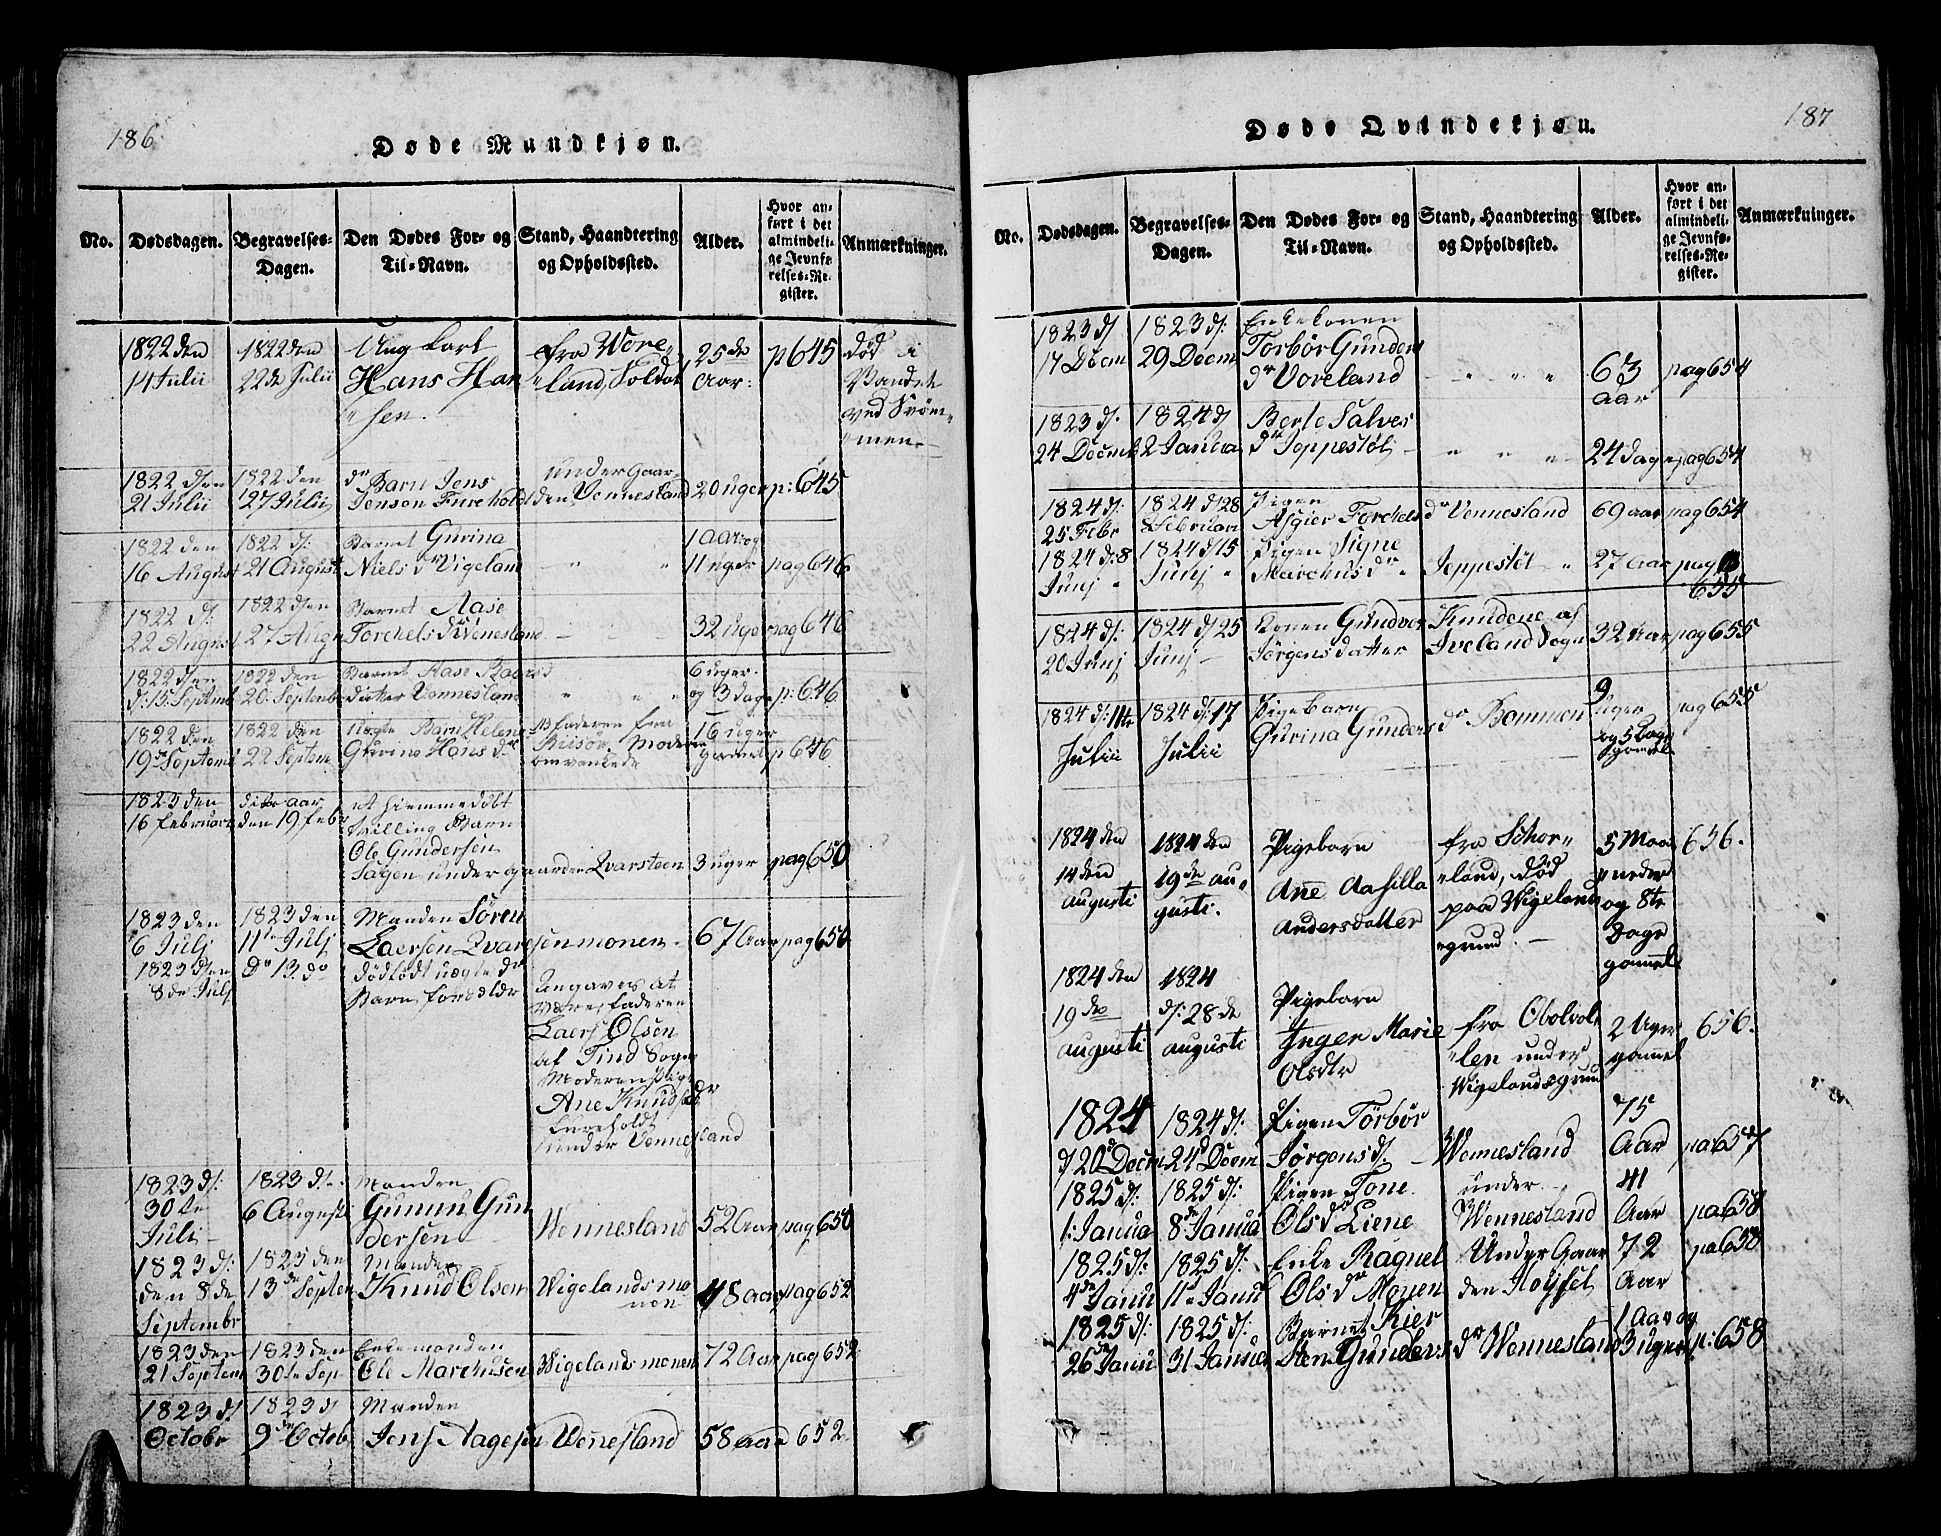 186.
Døde Mandkjøn.
No.
Dødsdagen.
Begravelses-Dagen.
Den Dødes For- og Til-Navn.
Stand, Haandtering og Opholdssted.
Alder.
Hvor anført i det almindelige Jevnførelses-Register.
Anmærkninger.
1822 den 14 Julii 1822 den 22de Julii Ung karl Hans Hansen. fra Voreland, Soldat 25de Aar: p645 død i Vandet ved Svømmen
1822 den 21 Julii 1822 den 27 Julii Barn Jens Jenson Fureholdt under Gaarden Vennesland 20 uger p: 645
1822 den 16 August 1822 d: 21 August Barnet Gurina Niels dr Vigeland " " 1 aar og 11 uger pag 646
1822 d: 22 August 1822 den 27 Aug Barnet Aase Torchels dr Venesland 32 uger pag 646
1822 den d: 15 Septemb 1822 den 20: Septemb Barnet Aase datter Vennesland " " " 6 uger og 3 dage p: 646
1822 den 19de Septemb 1822 den 22 Septem uægte Barn Helene Gurine Hans dr Faderen fra Riisør, Moderen omvankede 16 uger gammel p 646
1823 den 16 februari dito aar den 19 febr et hiemmedøbt tvilling Barn Ole Gundersen Sagen under gaarden Qvarsteen 3 uger pag 650
1823 den 6 Julj 1823 den 11te Julj Manden Sören Laersen Qvarstenmonen 67 Aar pag 650
1823 den 8de Julj Do 13. do dödfödt uægte dr Barn, foreldr Angaves at være, faderen Laers Olsen af Tind Sogn Moderen Pige Ane Knuds dr Fureholdt under Vennesland
1823 d: 30te Juli 1823 d: 6 August Manden Gunun Gundersen Wennesland 52 Aar pag 650
1823 d: den 8de Septembr 1823 den 13de Septem Manden Knud Olsen Wigelandsmonen 48 aar pag 652
1823 den 21 Septem 1823 den 30te Sep Enkemanden Ole Marchusen Wigelandsmonen 72 Aar pag 652
1823 d: Octobr 1823 d 9de Octob Manden Jens Aagesen Vennesland 58 aar 652
187
Døde Qvindekjøn.
No.
Dødsdagen.
Begravelses-Dagen.
Den Dødes For- og Til-Navn.
Stand, Haandtering og Opholdssted.
Alder.
Hvor anført i det almindelige Jevnførelses-Register.
Anmærkninger.
1823 d: 17 Decm 1823 d: 29 Decm Enkekonen Torbør Gunders dr Voreland " " " 63 aar pag 654
1823 d: 24 Decmb 1824 d: 2 Janua Berte Salves dr Joppestøl " " " 24 dage pag 654
1824 d: 25 Febr 1824 d 28 Februari Pigen Asgier Torchels dr Vennesland 69 aar pag 654
1824 d: 8 Junj 1824 d 15 Junj Pigen Signe Marchus dr Joppestöl 27 Aar pag 655
1824 d: 20 Junj 1824 d 25 Junj Konen Gundver Jørgensdatter Knudene af Iveland Sogn 32 Aar pag 655
1824 d: 11te Julii 1824 d: 17 Julii Pigebarn Gurina Gunders dr Bommen 9 uger og 5 Dage gammel pag 655
1824 den 14 den augusti 1824 den 19de augusti. Pigebarn Ane Aasilla Andersdatter fra Schorland, død paa Wigelands grund. 5 Maaneder og 8te Dage gammel 656.
1824 den 19de augusti 1824 d: 28de augusti Pigebarn Inger Marie Olsdtr fra Obolvollen under Wigelandsgrund 2 Uger gammel 656.
1824 d 20 Decm 1824 d: 24 Decm Pigen Törbør Jørgens d: Wennesland 75 Aar pa 657
1825 d: 1: Janua 1825 d: 8de Janua Pigen Tone Ols dr Liene under Wennesland 41 Aar pa 658
1825 d: 4de Janu 1825 d: 11te Janu Enke Ragnel Ols dr Monen Under Gaarden Høysel 72 Aar pa 658
1825 d: 26 Janu 1825 d: 31 Janua Barnet Kier Gunders dr Wennesland 1 Aar og 3 uger p: 658